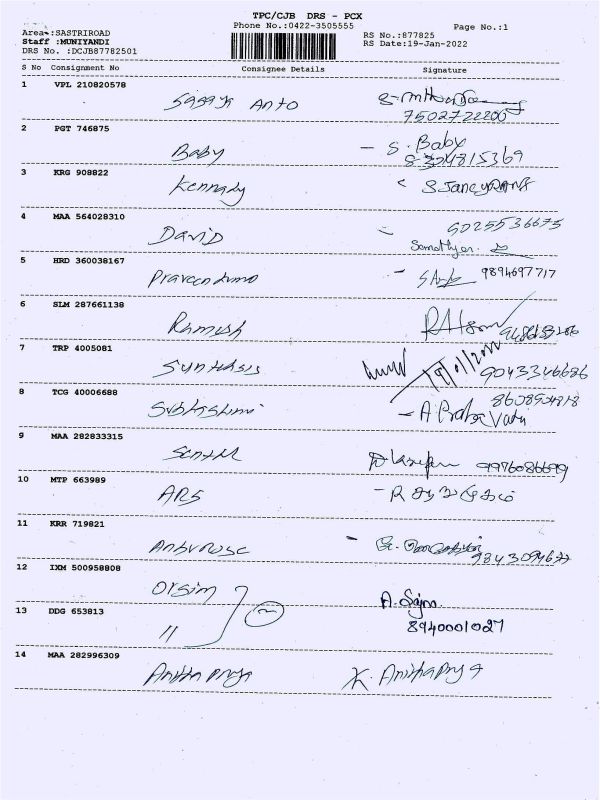 TPC/CJB DRS - PCX
Phone No.:0422-3505555
Page No.:1
Area :SASTRIROAD
Staff :MUNIYANDI
DRS No. :DCJB87782501
RS No.:877825
RS Date:19-Jan-2022
S No Consignment No Consignee Details Signature
1 VPL 210820578
Anto
7502722200
2 PGT 746875
Baby - S. Baby
8324815369
3 KRG 908822
Kennady S JancyRANI
4 MAA 564028310
David 9025536675
5 HRD 360038167
9894697717
6 SLM 287661138
Ramesh
7 TRP 4005081
19/01/2022
9043346686
8 TCG 40006688
8608904818
- A Praba Vathi
9 MAA 282833315
9976086699
10 MTP 663989
ARS - R
11 KRR 719821
Ambrose
9843094677
12 IXM 500958808
Orsim
13 DDG 653813
"
A. Sajin
8940001027
14 MAA 282996309
Anitha priya K. Anithapriya